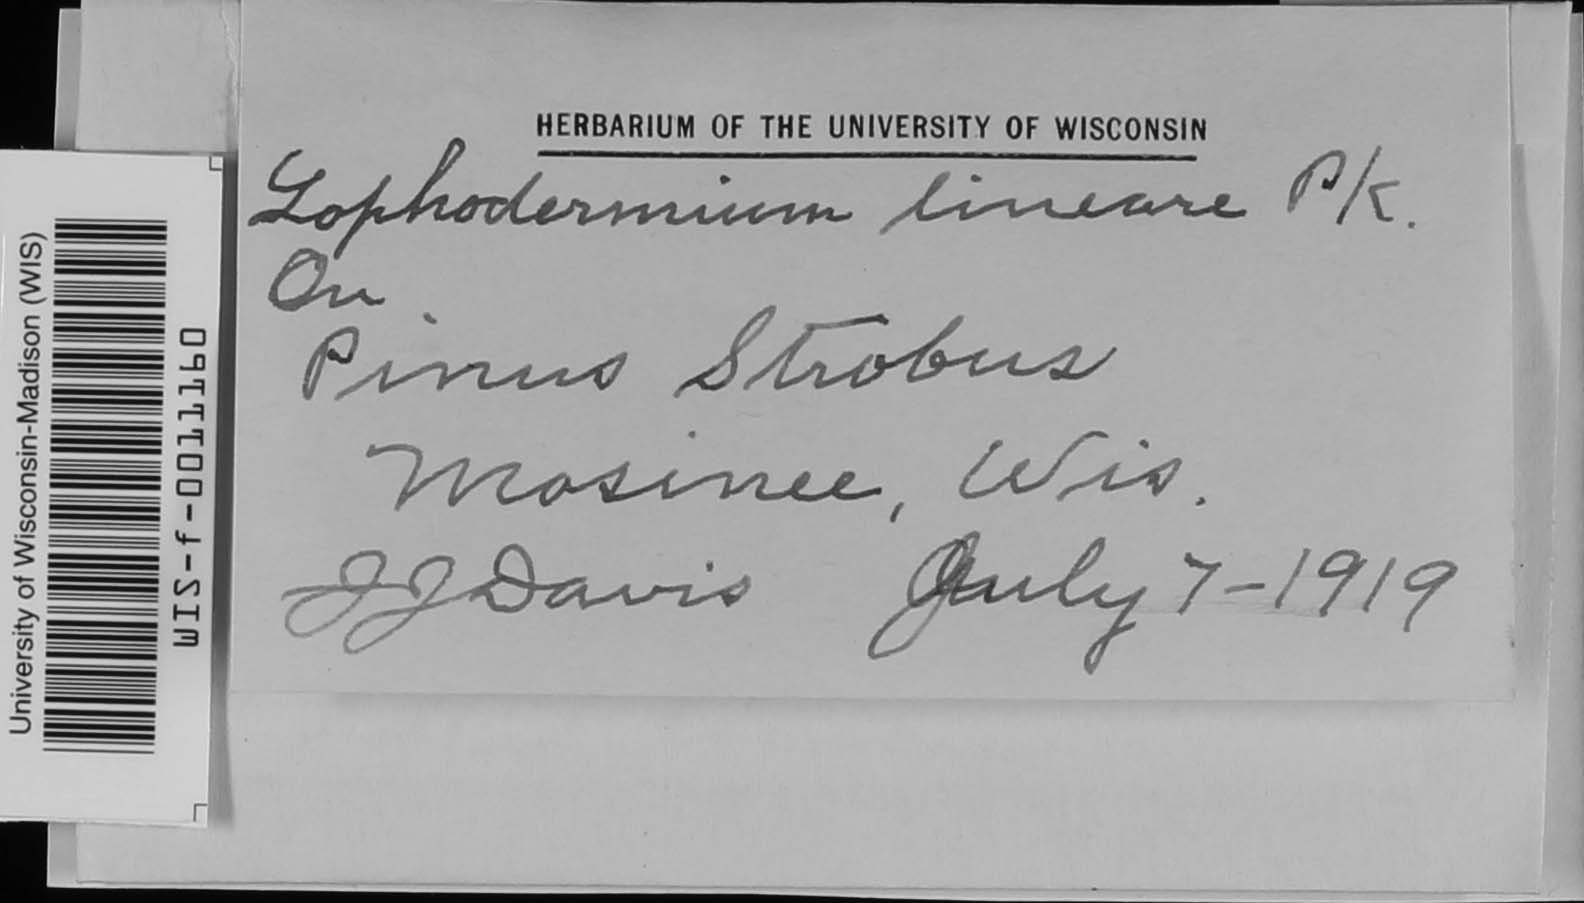 HERBARIUM OF THE UNIVERSITY OF WISCONSIN
Lophodermium lineare Pk.
On
Pinus Strobus
Mosinee, Wis.
JJDavis July 7-1919
University of Wisconsin-Madison (WIS)
WIS-f-0011160